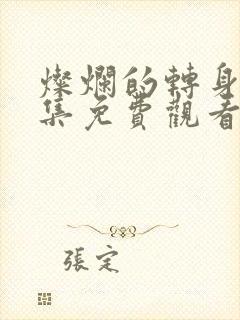 燦爛的轉身
集免費觀看
張定